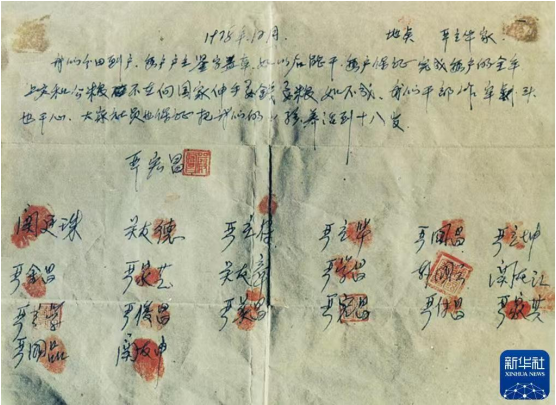 1978年12月。 地点 严立华家
我们分田到户,每户户主签字盖章,如以后能干,每户保证完成每户的全年
上交和公粮,不在向国家伸手要钱要粮,如不成,我们干部作牢刹头
也干心,大家社员也保证把我们的小孩养活到十八岁。
严宏昌
关廷珠 关友德 严立付 严立华 严国昌 严立坤
严金昌 严家芝 关友章 严学昌 韩国云 关友江
严立学 严俊昌 严美昌 严宏昌 严付昌 严家其
严国品 关友申
新华社
XINHUA NEWS